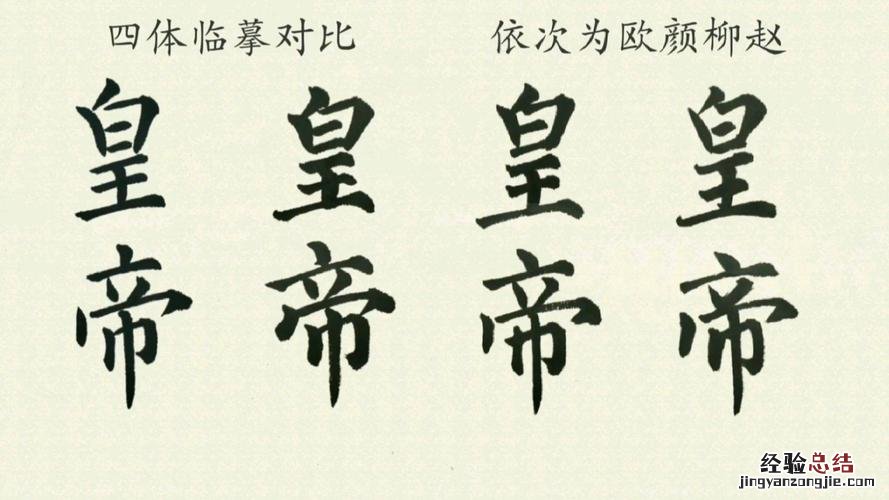 四体临摹对比 依次为欧颜柳赵
皇 皇 皇 皇
帝 帝 帝 帝
经验总结
jingyanzongjie.com